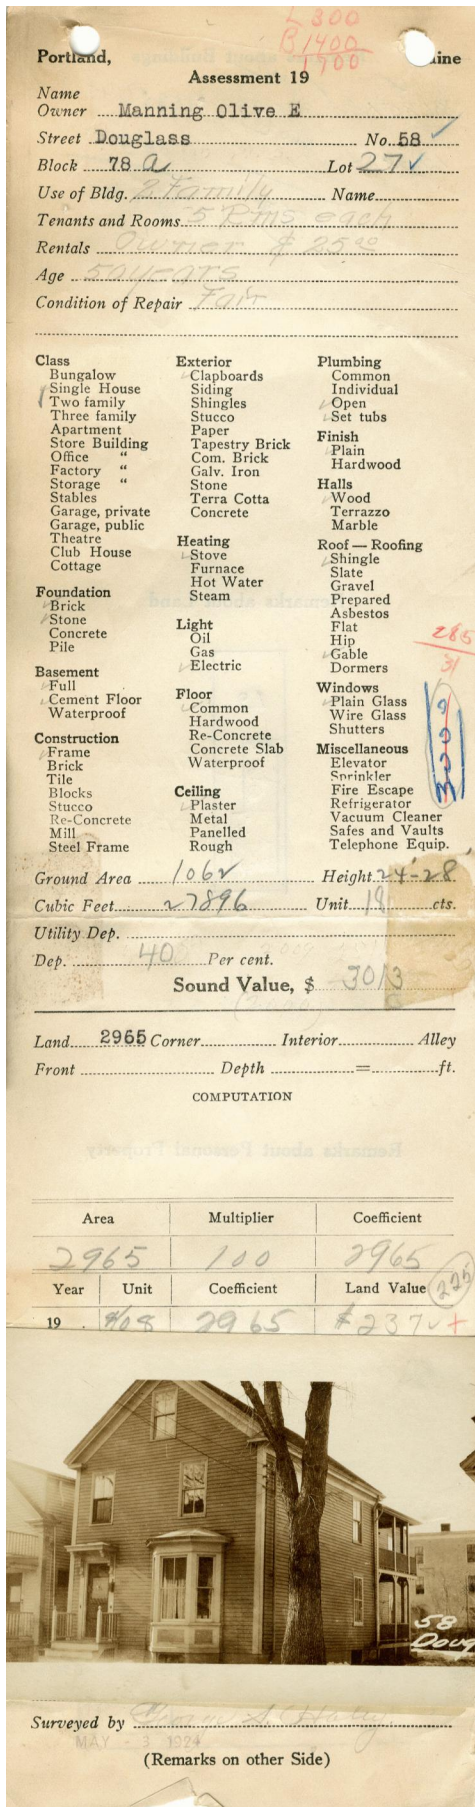 L 300
B 1400
1700
Portland, aine
Assessment 19
Name
Owner Manning Olive E
Street Douglass No. 58 ✓
Block 78 a Lot 27 ✓
Use of Bldg. 2 Family Name
Tenants and Rooms 5 Rms each
Rentals Owner $ 25.00
Age 50 years
Condition of Repair Fair
Class
Bungalow
Single House
Two family
Three family
Apartment
Store Building
Office "
Factory "
Storage "
Stables
Garage, private
Garage, public
Theatre
Club House
Cottage
Foundation
Brick
Stone
Concrete
Pile
Basement
Full
Cement Floor
Waterproof
Construction
Frame
Brick
Tile
Blocks
Stucco
Re-Concrete
Mill
Steel Frame
Exterior
Clapboards
Siding
Shingles
Stucco
Paper
Tapestry Brick
Com. Brick
Galv. Iron
Stone
Terra Cotta
Concrete
Heating
Stove
Furnace
Hot Water
Steam
Light
Oil
Gas
Electric
Floor
Common
Hardwood
Re-Concrete
Concrete Slab
Waterproof
Ceiling
Plaster
Metal
Panelled
Rough
Plumbing
Common
Individual
Open
Set tubs
Finish
Plain
Hardwood
Halls
Wood
Terrazzo
Marble
Roof — Roofing
Shingle
Slate
Gravel
Prepared
Asbestos
Flat
Hip
Gable
Dormers
Windows
Plain Glass
Wire Glass
Shutters
Miscellaneous
Elevator
Sprinkler
Fire Escape
Refrigerator
Vacuum Cleaner
Safes and Vaults
Telephone Equip.
285
31
3000
Ground Area 1062 Height 24-28
Cubic Feet 27896 Unit 18 cts.
Utility Dep.
Dep. 40 Per cent.
Sound Value, $ 3013
Land 2965 Corner Interior Alley
Front Depth = ft.
COMPUTATION
Area Multiplier Coefficient
2965 100 2965
Year Unit Coefficient Land Value 225
19 . 08 2965 $ 237 +
58
Doug
Surveyed by George S.
MAY - 3 1924
(Remarks on other Side)